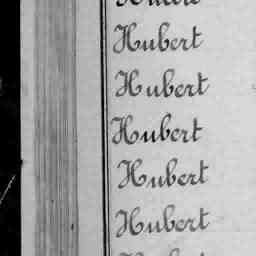 Hubert
Hubert
Hubert
Hubert
Hubert